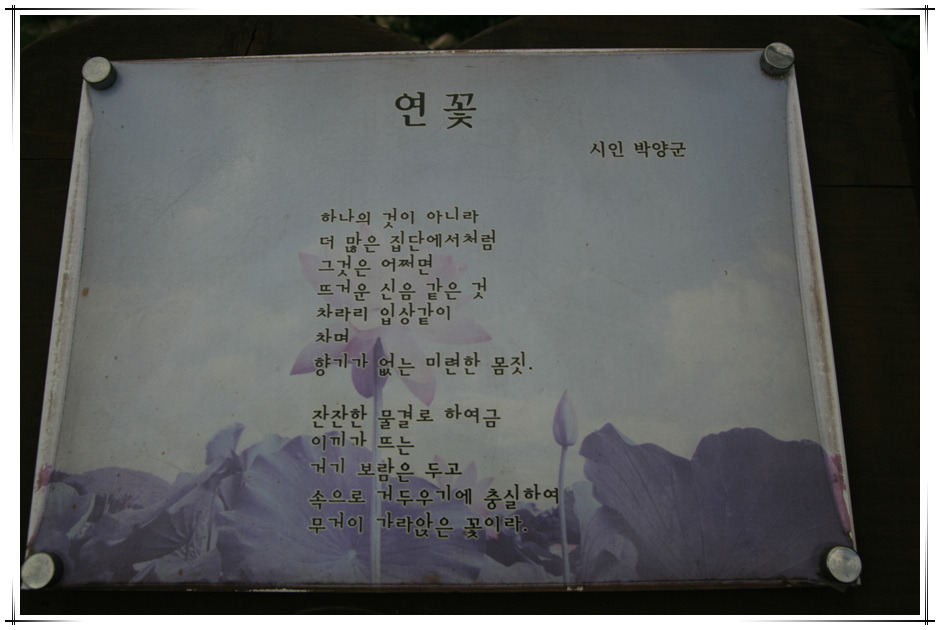 연 꽃
시인 박양군
하나의 것이 아니라
더 많은 집단에서처럼
그것은 어쩌면
뜨거운 신음 같은 것
차라리 입상같이
차며
향기가 없는 미련한 몸짓.
잔잔한 물결로 하여금
이끼가 뜨는
거기 보람은 두고
속으로 거두우기에 충실하여
무거이 가라앉은 꽃이라.